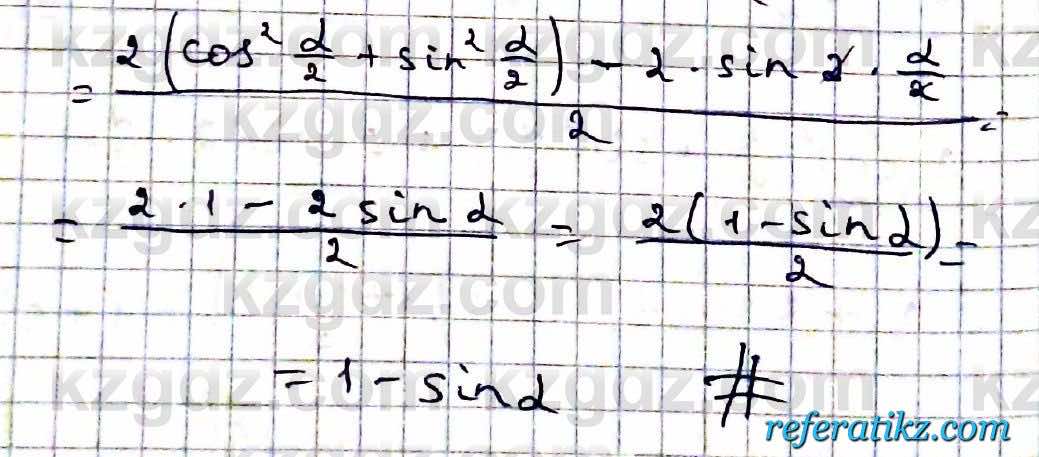 = (2(cos² α/2 + sin² α/2) - 2 · sin 2 · α/2) / 2 =
= (2 · 1 - 2 sin α) / 2 = (2(1 - sin α)) / 2 =
= 1 - sin α #
kzgdz.com
referatikz.com